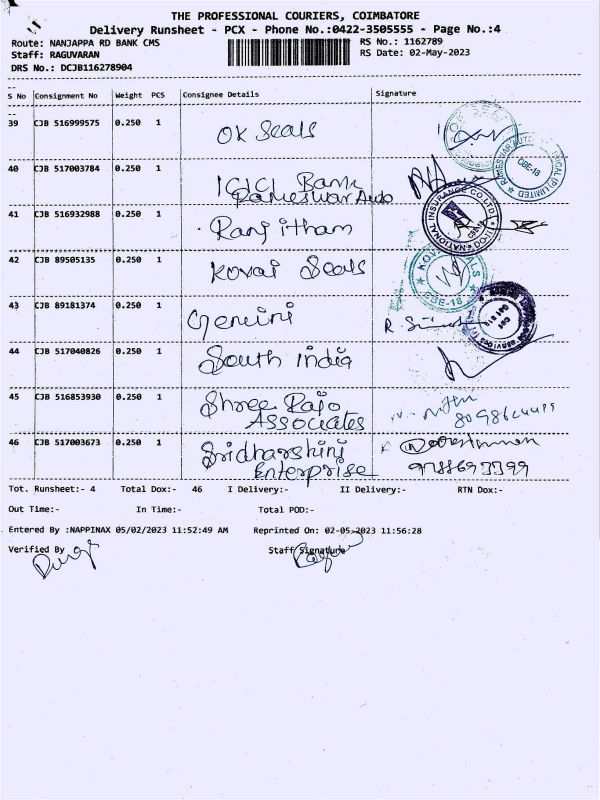 THE PROFESSIONAL COURIERS, COIMBATORE
Delivery Runsheet - PCX - Phone No.:0422-3505555 - Page No.:4
Route: NANJAPPA RD BANK CMS
RS No.: 1162789
Staff: RAGUVARAN
RS Date: 02-May-2023
DRS No.: DCJB116278904
S No Consignment No Weight PCS Consignee Details Signature
39 CJB 516999575 0.250 1 OK Seals
40 CJB 517003784 0.250 1 ICICI Bank
Rameswar Auto
41 CJB 516932988 0.250 1 Ranjitham
42 CJB 89505135 0.250 1 Kovai Seals
43 CJB 89181374 0.250 1 Gemini
44 CJB 517040826 0.250 1 South India
45 CJB 516853930 0.250 1 Shree Rajo
Associates
46 CJB 517003673 0.250 1 Sridharshini
Enterprise
9788693399
NATIONAL INSURANCE CO LTD
CBE-18
CBE-18
Tot. Runsheet:- 4 Total Dox:- 46 I Delivery:- II Delivery:- RTN Dox:-
Out Time:- In Time:- Total POD:-
Entered By :NAPPINAX 05/02/2023 11:52:49 AM Reprinted On: 02-05-2023 11:56:28
Verified By Staff Signature